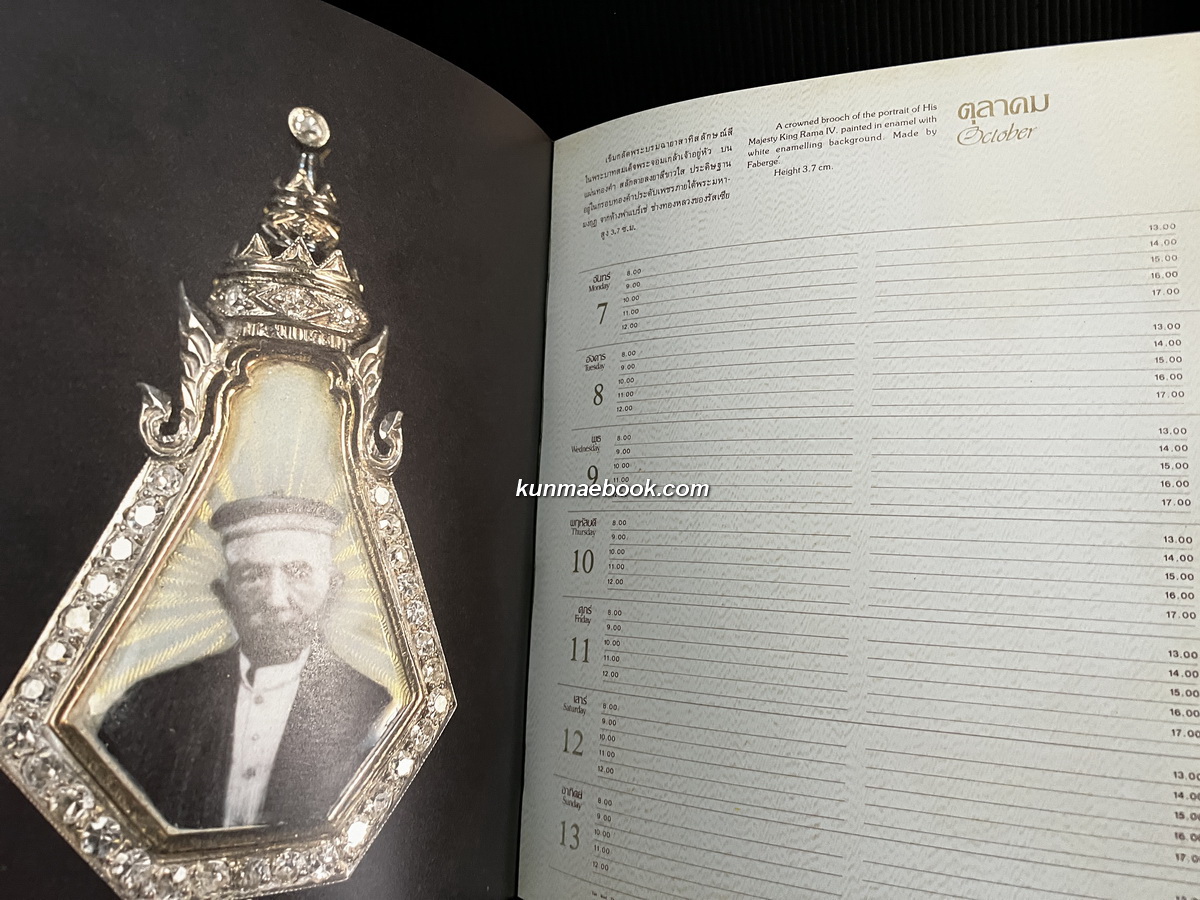 เข็มกลัดพระบรมฉายาสาทิสลักษณ์สี
ในพระบาทสมเด็จพระจอมเกล้าเจ้าอยู่หัว บน
แผ่นทองคำ สลักลายลงยาสีขาวใส ประดิษฐาน
อยู่ในกรอบทองคำประดับเพชรภายใต้พระมหา-
มงกุฎ จากห้างฟาแบร์เช่ ช่างทองหลวงของรัสเซีย
สูง 3.7 ซ.ม.
A crowned brooch of the portrait of His
Majesty King Rama IV. painted in enamel with
white enamelling background. Made by
Fabergé.
Height 3.7 cm.
ตุลาคม
October
จันทร์
Monday
7
8.00
9.00
10.00
11.00
12.00
13.00
14.00
15.00
16.00
17.00
อังคาร
Tuesday
8
8.00
9.00
10.00
11.00
12.00
13.00
14.00
15.00
16.00
17.00
พุธ
Wednesday
9
8.00
9.00
10.00
11.00
13.00
14.00
15.00
16.00
17.00
kunmaebook.com
พฤหัสบดี
Thursday
10
8.00
9.00
10.00
11.00
12.00
13.00
14.00
15.00
16.00
17.00
ศุกร์
Friday
11
8.00
9.00
10.00
11.00
12.00
13.00
14.00
15.00
16.00
17.00
เสาร์
Saturday
12
8.00
9.00
10.00
11.00
12.00
13.00
14.00
15.00
16.00
17.00
อาทิตย์
Sunday
13
8.00
9.00
10.00
11.00
12.00